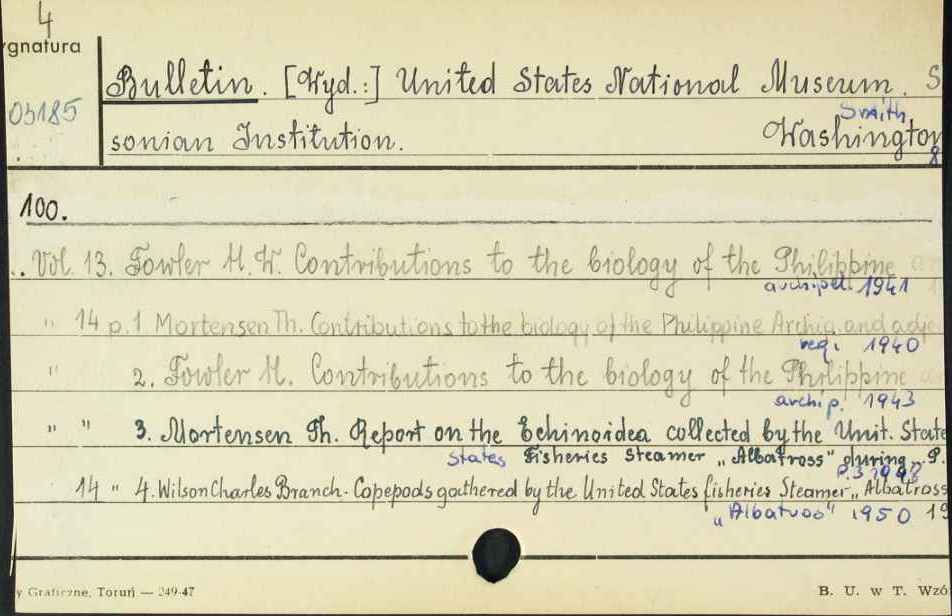 4
ygnatura
Bulletin. [Wyd.:] United States National Museum. S
05185
Smith
sonian Institution. Washington
8
100.
Vol. 13. Fowler H. W. Contributions to the biology of the Philippine
archipel. 1941
" 14 p. 1 Mortensen Th. Contributions to the biology of the Philippine Archip. and adj
reg. 1940
" 2. Fowler H. Contributions to the biology of the Philippine
archip. 1943
" " 3. Mortensen Th. Report on the Echinoidea collected by the Unit. State
States Fisheries Steamer „Albatross" during „P.
P.3 1948
14 " 4. Wilson Charles Branch - Copepods gathered by the United States fisheries Steamer „Albatross
„Albatross" 1950 19
y Graficzne, Toruń — 249-47
B. U. w T. Wzó